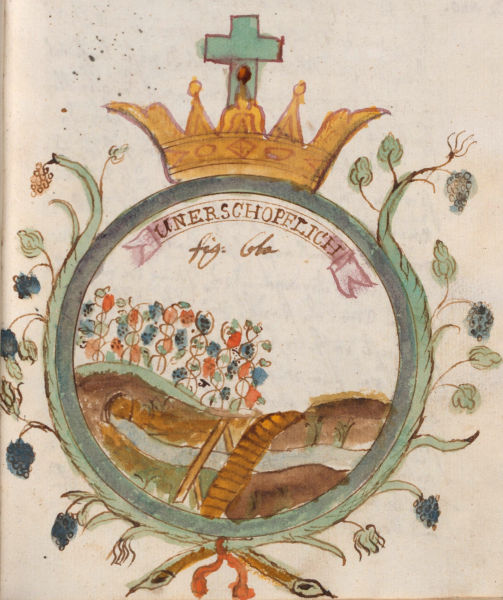 UNERSCHOPFLICH
fig: 6ta